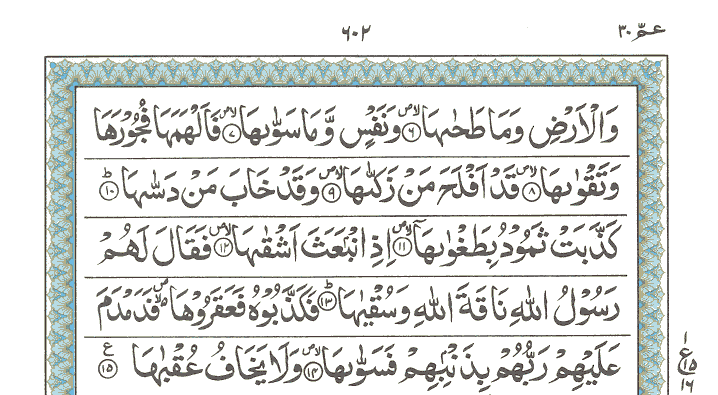 عمّ ٣٠
٦٠٢
وَالْاَرْضِ وَمَا طَحٰىهَا ۙ۝٦ وَنَفْسٍ وَّمَا سَوّٰىهَا ۙ۝٧ فَاَلْهَمَهَا فُجُوْرَهَا
وَتَقْوٰىهَا ۙ۝٨ قَدْ اَفْلَحَ مَنْ زَكّٰىهَا ۙ۝٩ وَقَدْ خَابَ مَنْ دَسّٰىهَا ؕ۝١٠
كَذَّبَتْ ثَمُوْدُ بِطَغْوٰىهَاۤ ۙ۝١١ اِذِ انْۢبَعَثَ اَشْقٰىهَا ۙ۝١٢ فَقَالَ لَهُمْ
رَسُوْلُ اللّٰهِ نَاقَةَ اللّٰهِ وَسُقْيٰهَا ؕ۝١٣ فَكَذَّبُوْهُ فَعَقَرُوْهَا ۙ۬ فَدَمْدَمَ
عَلَيْهِمْ رَبُّهُمْ بِذَنْۢبِهِمْ فَسَوّٰىهَا ۙ۝١٤ وَلَا يَخَافُ عُقْبٰهَا ۝١٥ ع
١
ع
١٥
١٦